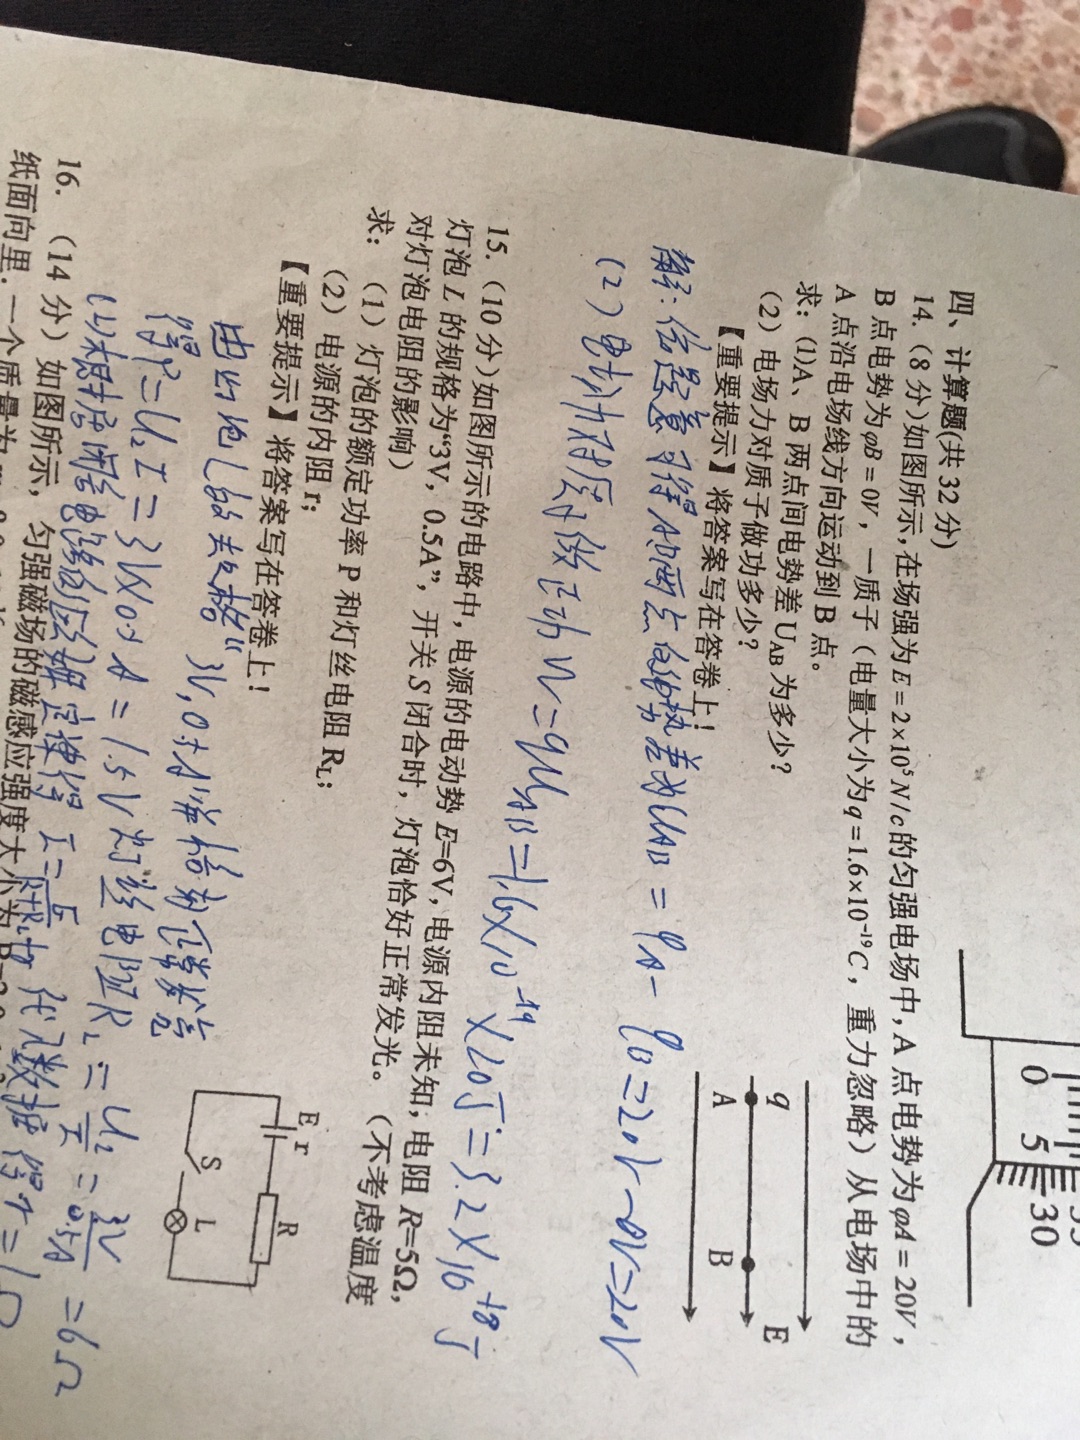 0 5
30
四、计算题(共 32 分)
14.（8 分)如图所示,在场强为 E = 2×10⁵ N/c 的匀强电场中,A 点电势为 φA = 20V，
B 点电势为 φB = 0V，一质子（电量大小为 q = 1.6×10⁻¹⁹ C，重力忽略）从电场中的
A 点沿电场线方向运动到 B 点。
求：(1)A、B 两点间电势差 U_AB 为多少？
（2）电场力对质子做功多少？
【重要提示】将答案写在答卷上！
q
A
B
E
解：依题意可得AB两点的电势差为UAB = φA - φB = 20V - 0V = 20V
(2) 电场力对质子做正功 W = qUAB = 1.6×10⁻¹⁹ × 20J = 3.2×10⁻¹⁸J
15.（10 分）如图所示的电路中，电源的电动势 E=6V，电源内阻未知；电阻 R=5Ω，
灯泡 L 的规格为“3V，0.5A”，开关 S 闭合时，灯泡恰好正常发光。（不考虑温度
对灯泡电阻的影响）
求：（1）灯泡的额定功率 P 和灯丝电阻 R_L；
（2）电源的内阻 r；
【重要提示】将答案写在答卷上！
E r
R
S
L
由灯泡L的规格“3V,0.5A”
得P=U_LI=3×0.5A=1.5V 灯丝电阻R_L=
=6Ω
(2)根据闭合电路欧姆定律得 I= 代入数据得r=1Ω
16.（14 分）如图所示，匀强磁场的磁感应强度大小为
纸面向里．一个质量为